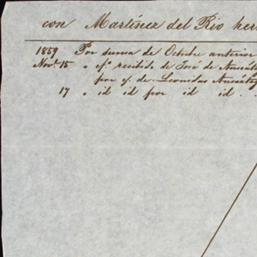 con Martinez del Rio her
1859 Por suma de Octubre anterior
Novre 15 " efvo recibido de José de Ansoáte
por cf. de Leonidas Ansoáteg
17 " id id por id id.